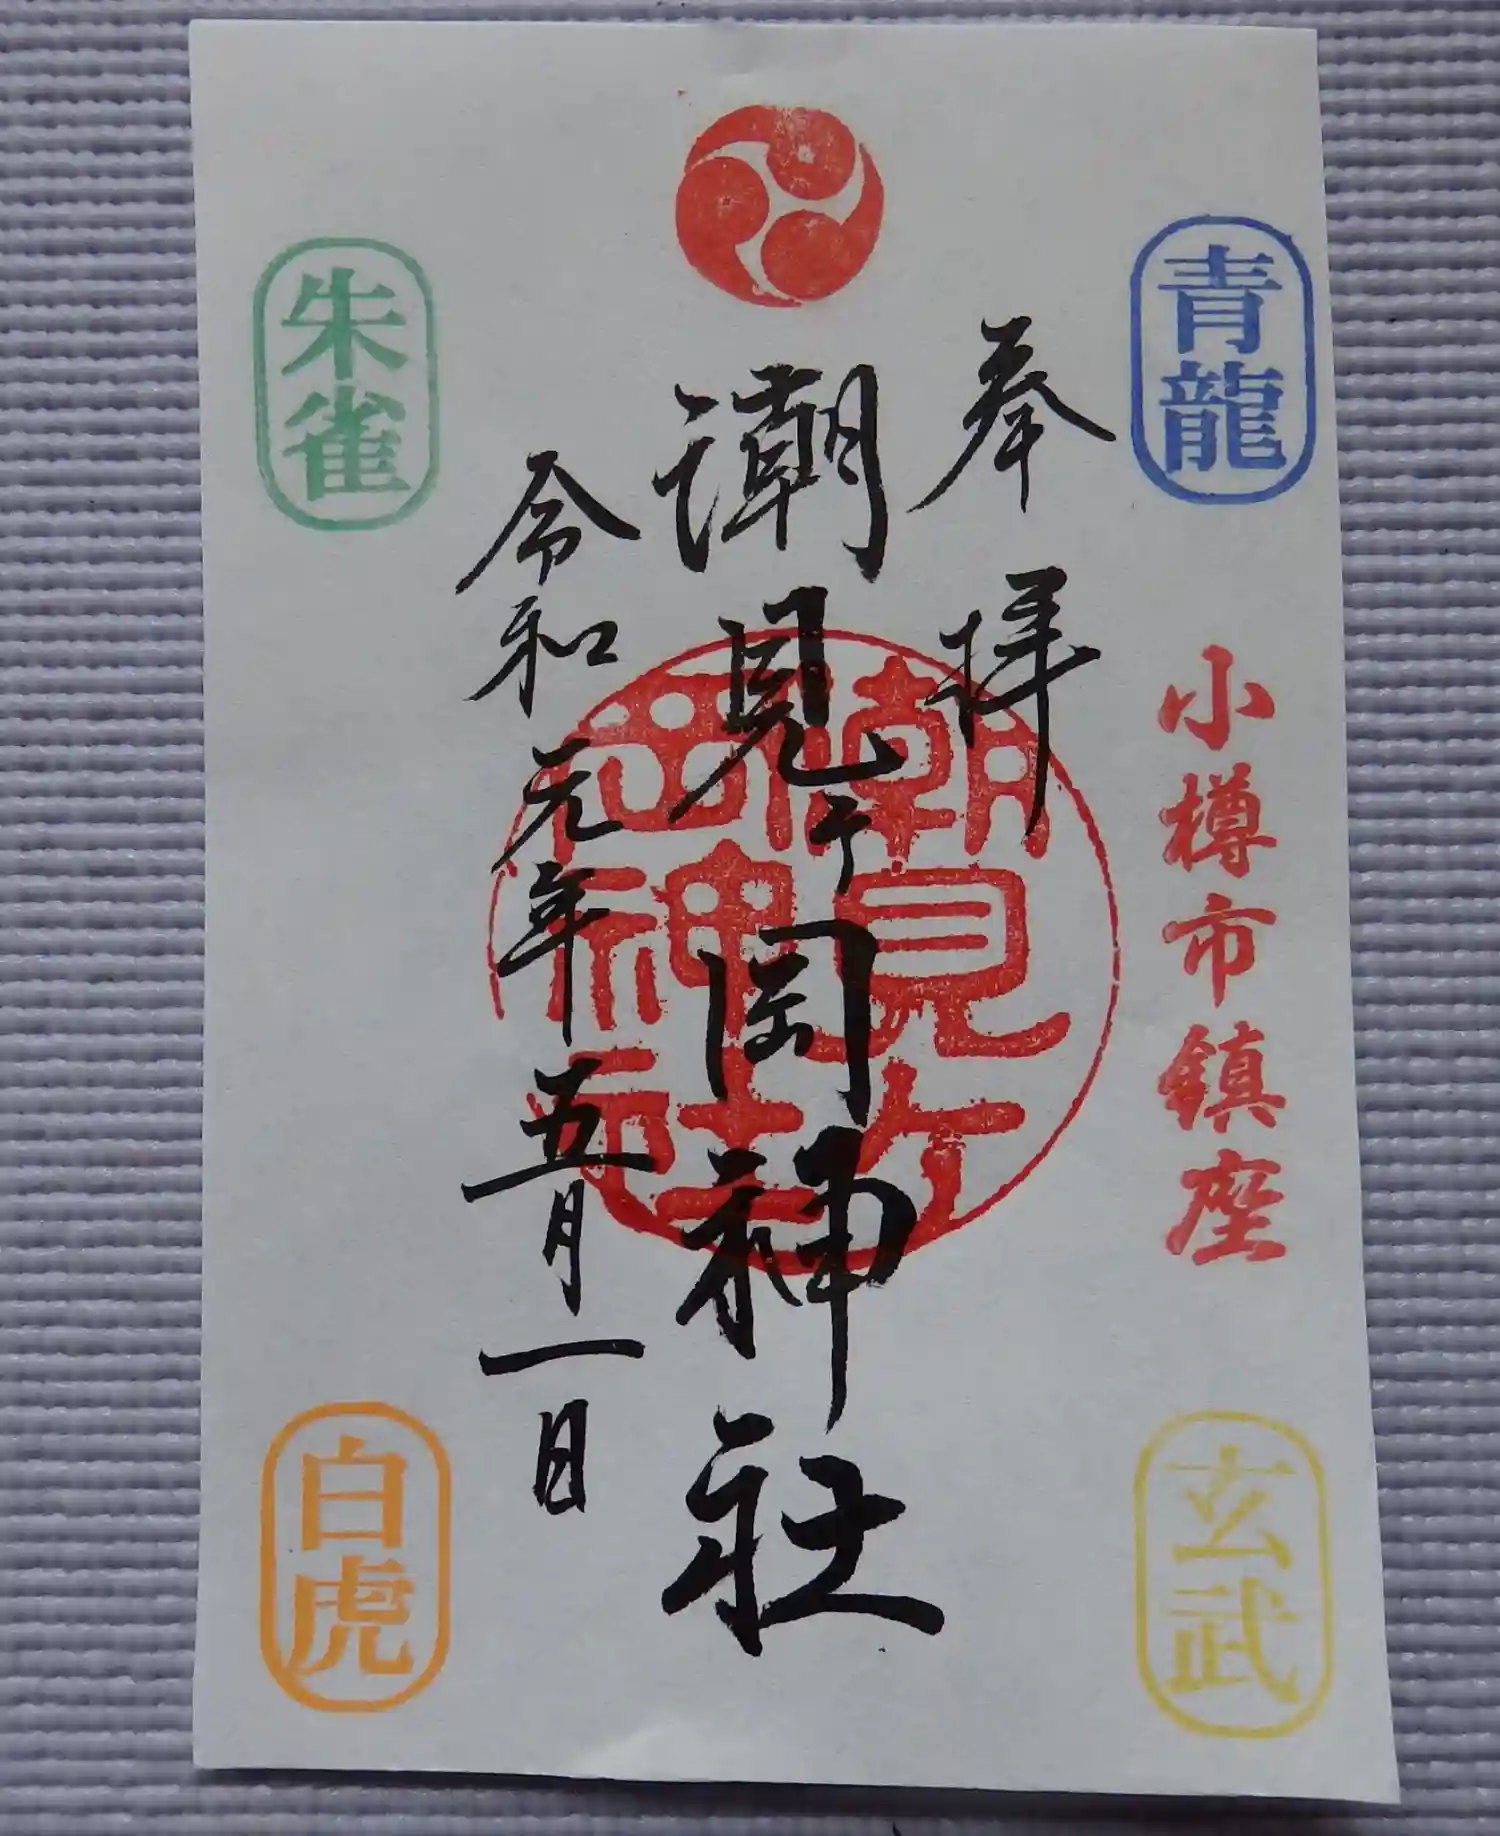 青龍
小樽市鎮座
玄武
奉拝
潮見ケ岡神社
潮見ケ岡神社
令和元年五月一日
朱雀
白虎